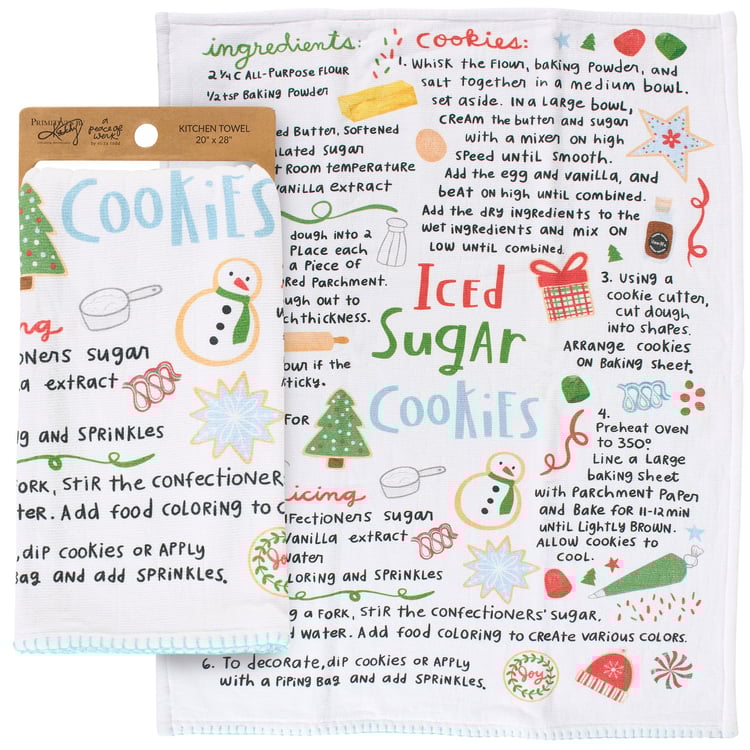 ingredients:
2 1/4 C All-Purpose Flour
1/2 tsp Baking Powder
ed Butter, Softened
ulated Sugar
t Room Temperature
Vanilla Extract
Cookies:
1. Whisk the flour, baking powder, and
salt together in a medium bowl.
set aside. In a large bowl,
cream the butter and sugar
with a mixer on high
speed until smooth.
Add the egg and vanilla, and
beat on high until combined.
Add the dry ingredients to the
wet ingredients and mix on
low until combined.
dough into 2
Place each
a piece of
red parchment.
ugh out to
ch thickness.
our if the
sticky.
for
Iced
Sugar
Cookies
3. Using a
cookie cutter,
cut dough
into shapes.
Arrange cookies
on baking sheet.
4.
Preheat oven
to 350°
Line a large
baking sheet
with parchment paper
and bake for 11-12 min
until lightly brown.
Allow cookies to
cool.
icing
nfectioners sugar
vanilla extract
water
loring and sprinkles
g a fork, stir the confectioners' sugar,
d water. Add food coloring to create various colors.
6. To decorate, dip cookies or apply
with a piping bag and add sprinkles.
Joy
Primitives
by Kathy
a
peace of
work
by eliza todd
KITCHEN TOWEL
20" x 28"
Cookies
ng
ioners sugar
a extract
g and sprinkles
fork, stir the confectioner
ter. Add food coloring to c
dip cookies or apply
bag and add sprinkles.
Joy